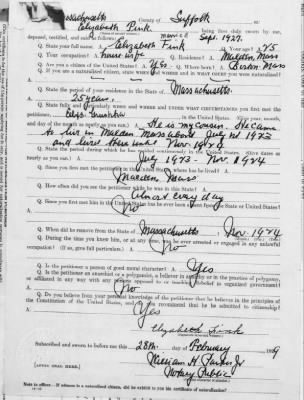 Massachusetts County of Suffolk ss:
Elizabeth Fink being first duly sworn
Sept. 1927.
Q. State your full name. A. Elizabeth Fink Q. Your age? 45
Q. Your occupation? A. housewife Q. Residence? A. Malden Mass
Q. Are you a citizen of the United States? A. Yes Q. Where born? A. Boston Mass
Q. If you are a naturalized citizen, state when and in what court you were naturalized?
A.
Q. State the period of your residence in the State of Massachusetts
A. 25 years.
Q. State fully and particularly when and where and under what circumstances you first met the
petitioner,
day and month of the year as nearly as you can.) A. He is my cousin. He came
to live in Malden Mass about July of 1923
and lived there until Nov. 1924
Q. State the period during which he
nearly as you can.) A. July 1923 - Nov. 1924
Q. Since you first met the petitioner where has he lived?
A. Malden Mass
Q. How often did you see the petitioner while he was in this State?
A. Almost every day
Q. Since you first met him in the United States has he ever been absent from the State or United States?
A. No
Q. When did he remove from the State of Massachusetts Nov. 1924
Q. During the time you knew him, or at any time, was he ever arrested or engaged in any unlawful
occupation? (If so, give full particulars.) A. No
Q. Is the petitioner a person of good moral character? A. Yes
Q. Is the petitioner an anarchist or a polygamist, a believer in anarchy or in the practice of polygamy,
or affiliated in any way with any persons opposed to or teaching disbelief in organized government?
A. No
Q. Do you believe from your personal knowledge of the petitioner that he believes in the principles of
the Constitution of the United States, that he should be admitted to citizenship?
A. Yes
Elizabeth Fink
Subscribed and sworn to before me this 28th day of February
William H.
Notary Public
Note to officer: If witness is a naturalized citizen, did he exhibit to you his certificate of naturalization?